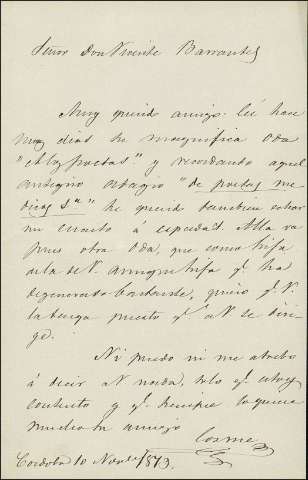 Señor Don Vicente Barrantes
Muy querido amigo: leí hace
muy dias su magnifica Oda
"A los poetas" y recordando aquel
antiguo adagio "de poetas me-
dicos &ª" he querido tambien echar
mi cuarto á espadas. Alla va
pues otra Oda, que como hija
de la de V. aunque hija q.e ha
degenerado bastante, quiero q.e V.
la tenga puesto q.e á V. se diri-
ge.
Ni puedo ni me atrevo
á decir á V. nada, solo q.e estoy
contento y q.e siempre le quiere
mucho su amigo
Cosme
Cordoba 10 Novbe 1873.